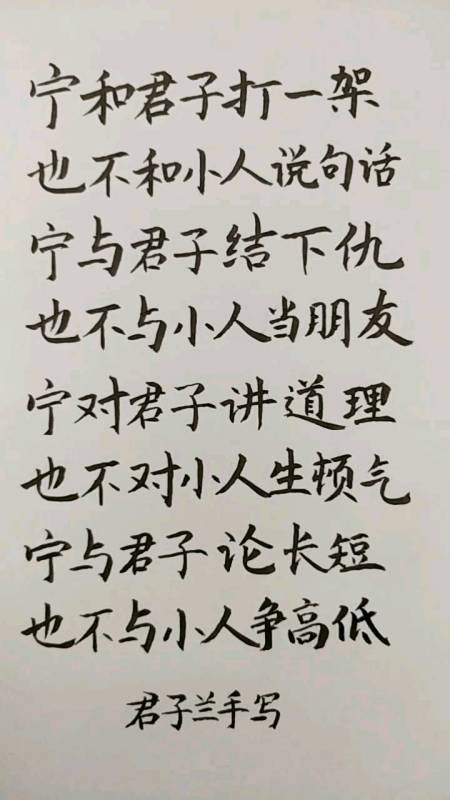 宁和君子打一架
也不和小人说句话
宁与君子结下仇
也不与小人当朋友
宁对君子讲道理
也不对小人生顿气
宁与君子论长短
也不与小人争高低
君子兰手写